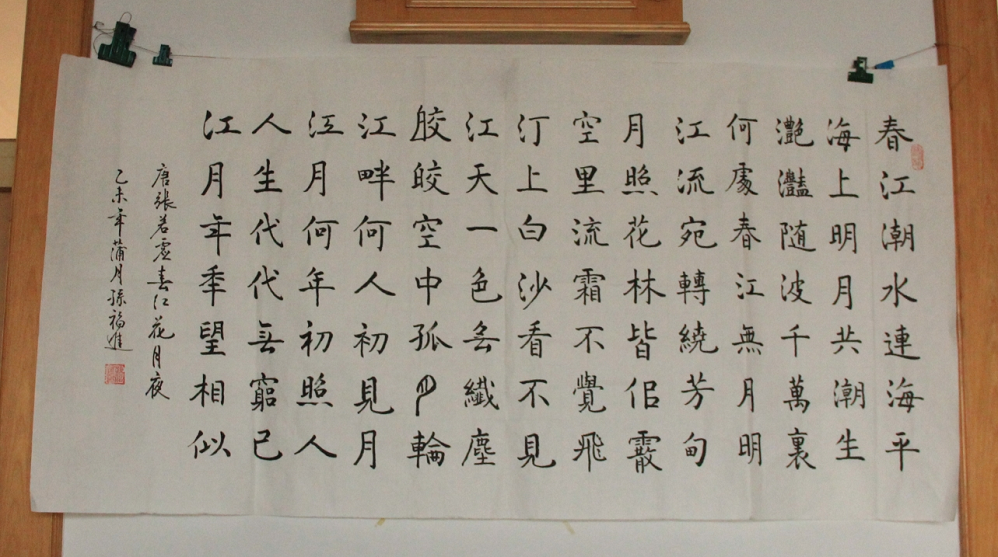 春江潮水連海平
海上明月共潮生
灧灩随波千萬裏
何處春江無月明
江流宛轉繞芳甸
月照花林皆佀霰
空里流霜不覺飛
汀上白沙看不見
江天一色无纖塵
皎皎空中孤月輪
江畔何人初見月
江月何年初照人
人生代代无窮已
江月年季望相似
唐張若虛春江花月夜
乙未年蒲月孫福進